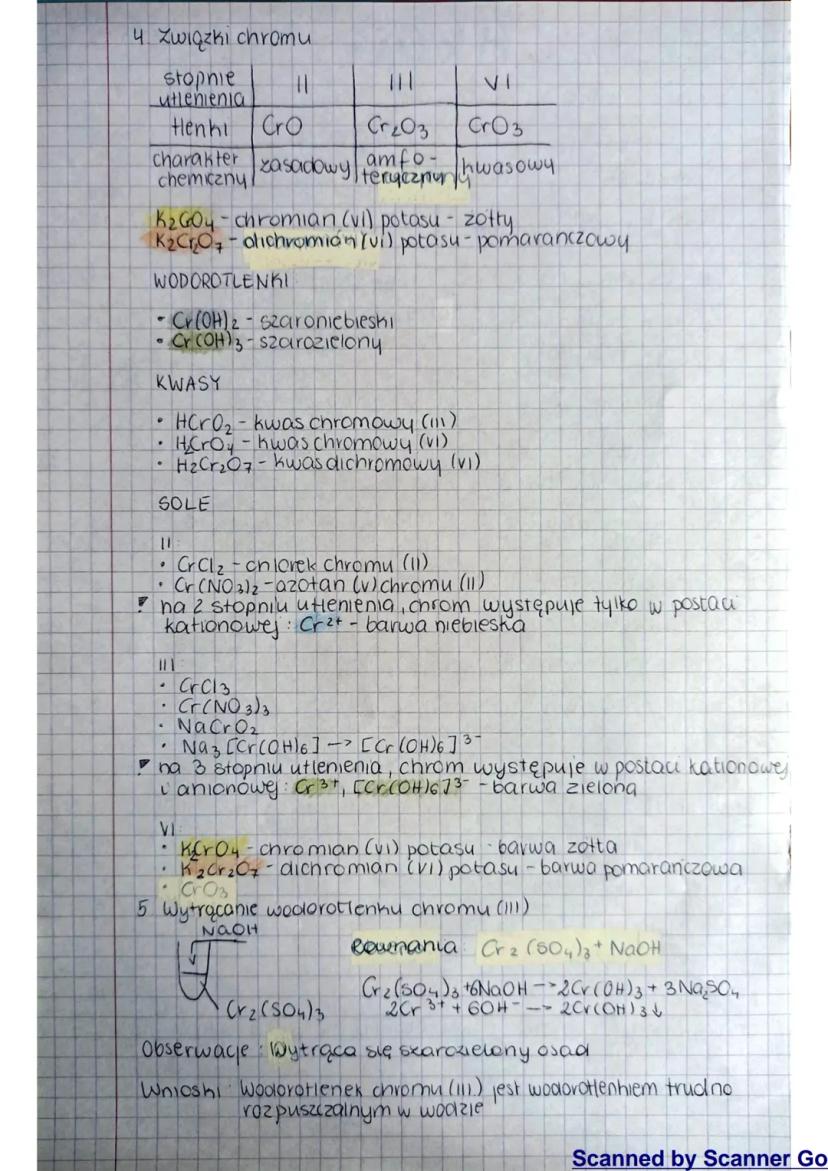 4. Związki chromu
stopnie utlenienia | II | III | VI
tlenki | CrO | Cr₂O₃ | CrO₃
charakter chemiczny | zasadowy | amfo-teryczny | kwasowy
K₂CrO₄ - chromian (VI) potasu - żółty
K₂Cr₂O₇ - dichromian (VI) potasu - pomarańczowy
WODOROTLENKI
• Cr(OH)₂ - szaroniebieski
• Cr(OH)₃ - szarozielony
KWASY
• HCrO₂ - kwas chromowy (III)
• H₂CrO₄ - kwas chromowy (VI)
• H₂Cr₂O₇ - kwas dichromowy (VI)
SOLE
II:
• CrCl₂ - chlorek chromu (II)
• Cr(NO₃)₂ - azotan (V) chromu (II)
! na 2 stopniu utlenienia, chrom występuje tylko w postaci
kationowej: Cr²⁺ - barwa niebieska
III:
• CrCl₃
• Cr(NO₃)₃
• NaCrO₂
• Na₃[Cr(OH)₆] → [Cr(OH)₆]³⁻
! na 3 stopniu utlenienia, chrom występuje w postaci kationowej
i anionowej: Cr³⁺, [Cr(OH)₆]³⁻ - barwa zielona
VI:
• K₂CrO₄ - chromian (VI) potasu - barwa żółta
• K₂Cr₂O₇ - dichromian (VI) potasu - barwa pomarańczowa
• CrO₃
5. Wytrącanie wodorotlenku chromu (III)
NaOH
Równania: Cr₂(SO₄)₃ + NaOH
Cr₂(SO₄)₃ + 6NaOH → 2Cr(OH)₃ + 3Na₂SO₄
Cr₂(SO₄)₃
2Cr³⁺ + 6OH⁻ → 2Cr(OH)₃↓
Obserwacje: Wytrąca się szarozielony osad
Wnioski: Wodorotlenek chromu (III) jest wodorotlenkiem trudno
rozpuszczalnym w wodzie
Scanned by Scanner Go